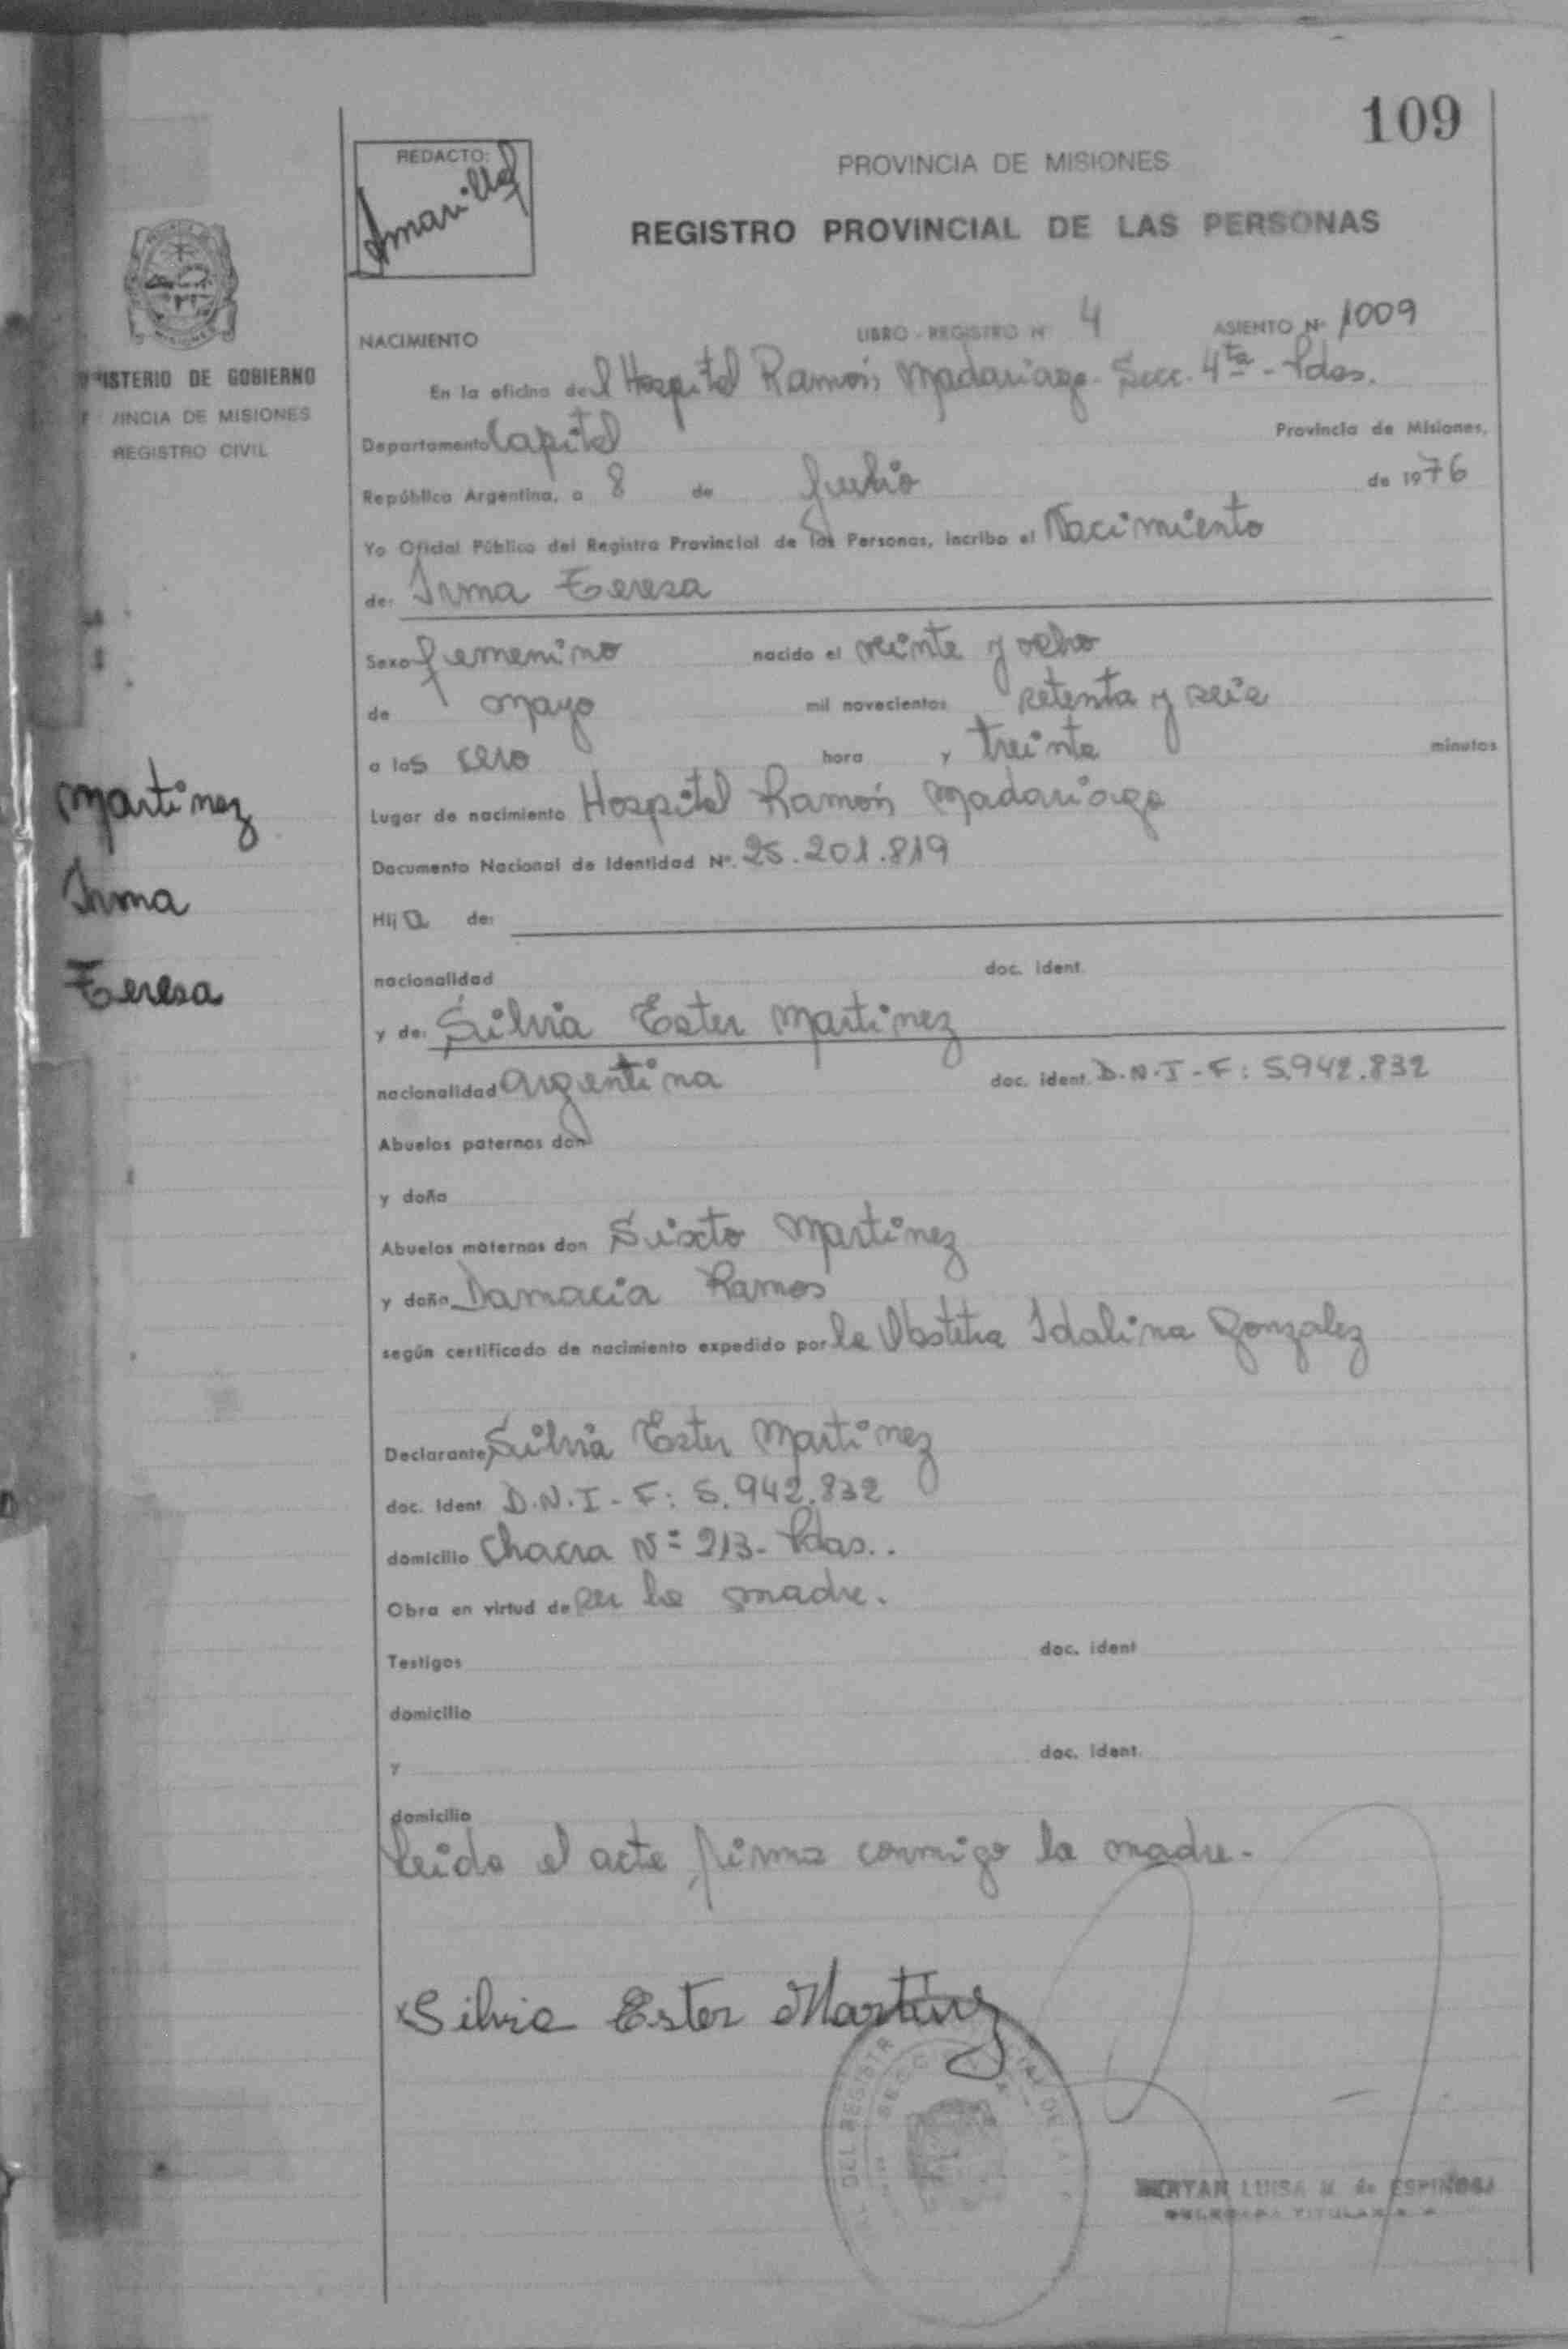 109
REDACTO:
Amarilla
PROVINCIA DE MISIONES
REGISTRO PROVINCIAL DE LAS PERSONAS
NACIMIENTO LIBRO - REGISTRO Nº 4 ASIENTO Nº 1009
MISIONES
MINISTERIO DE GOBIERNO
VINCIA DE MISIONES
REGISTRO CIVIL
En la oficina del Hospital Ramón Madariaga - Secc. 4ta - Pdas.
Departamento Capital Provincia de Misiones,
República Argentina, a 8 de Julio de 1976
Yo Oficial Público del Registro Provincial de las Personas, incribo el Nacimiento
de: Irma Teresa
Sexo femenino nacido el veinte y ocho
de mayo mil novecientos setenta y seis
a las cero hora y treinta minutos
Lugar de nacimiento Hospital Ramón Madariaga
Documento Nacional de Identidad Nº. 25.201.819
Hija de:
nacionalidad doc. ident.
y de: Silvia Ester Martinez
nacionalidad argentina doc. ident. D.N.I - F: 5.942.832
Abuelos paternos don
y doña
Abuelos maternos don Sixto Martinez
y doña Damacia Ramos
según certificado de nacimiento expedido por la Obstetra Idalina Gonzalez
Declarante Silvia Ester Martinez
doc. ident D.N.I - F: 5.942.832
domicilio Chacra Nº 213 - Pdas..
Obra en virtud de ser la madre.
Testigos doc. ident
domicilio
y doc. ident.
domicilio
Leida el acta, firma conmigo la madre.
Silvia Ester Martinez
BERTAN LUISA M. de ESPINOSA
DELEGADA TITULAR
Martinez
Irma
Teresa